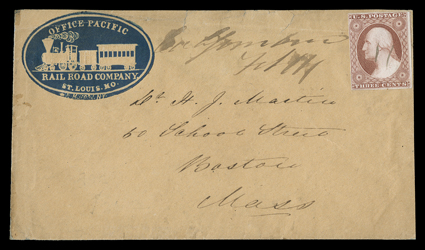 OFFICE PACIFIC
RAIL ROAD COMPANY.
ST. LOUIS. MO.
U.S. POSTAGE
THREE CENTS
Dr. H. J. Martin
60 School Street
Boston
Mass